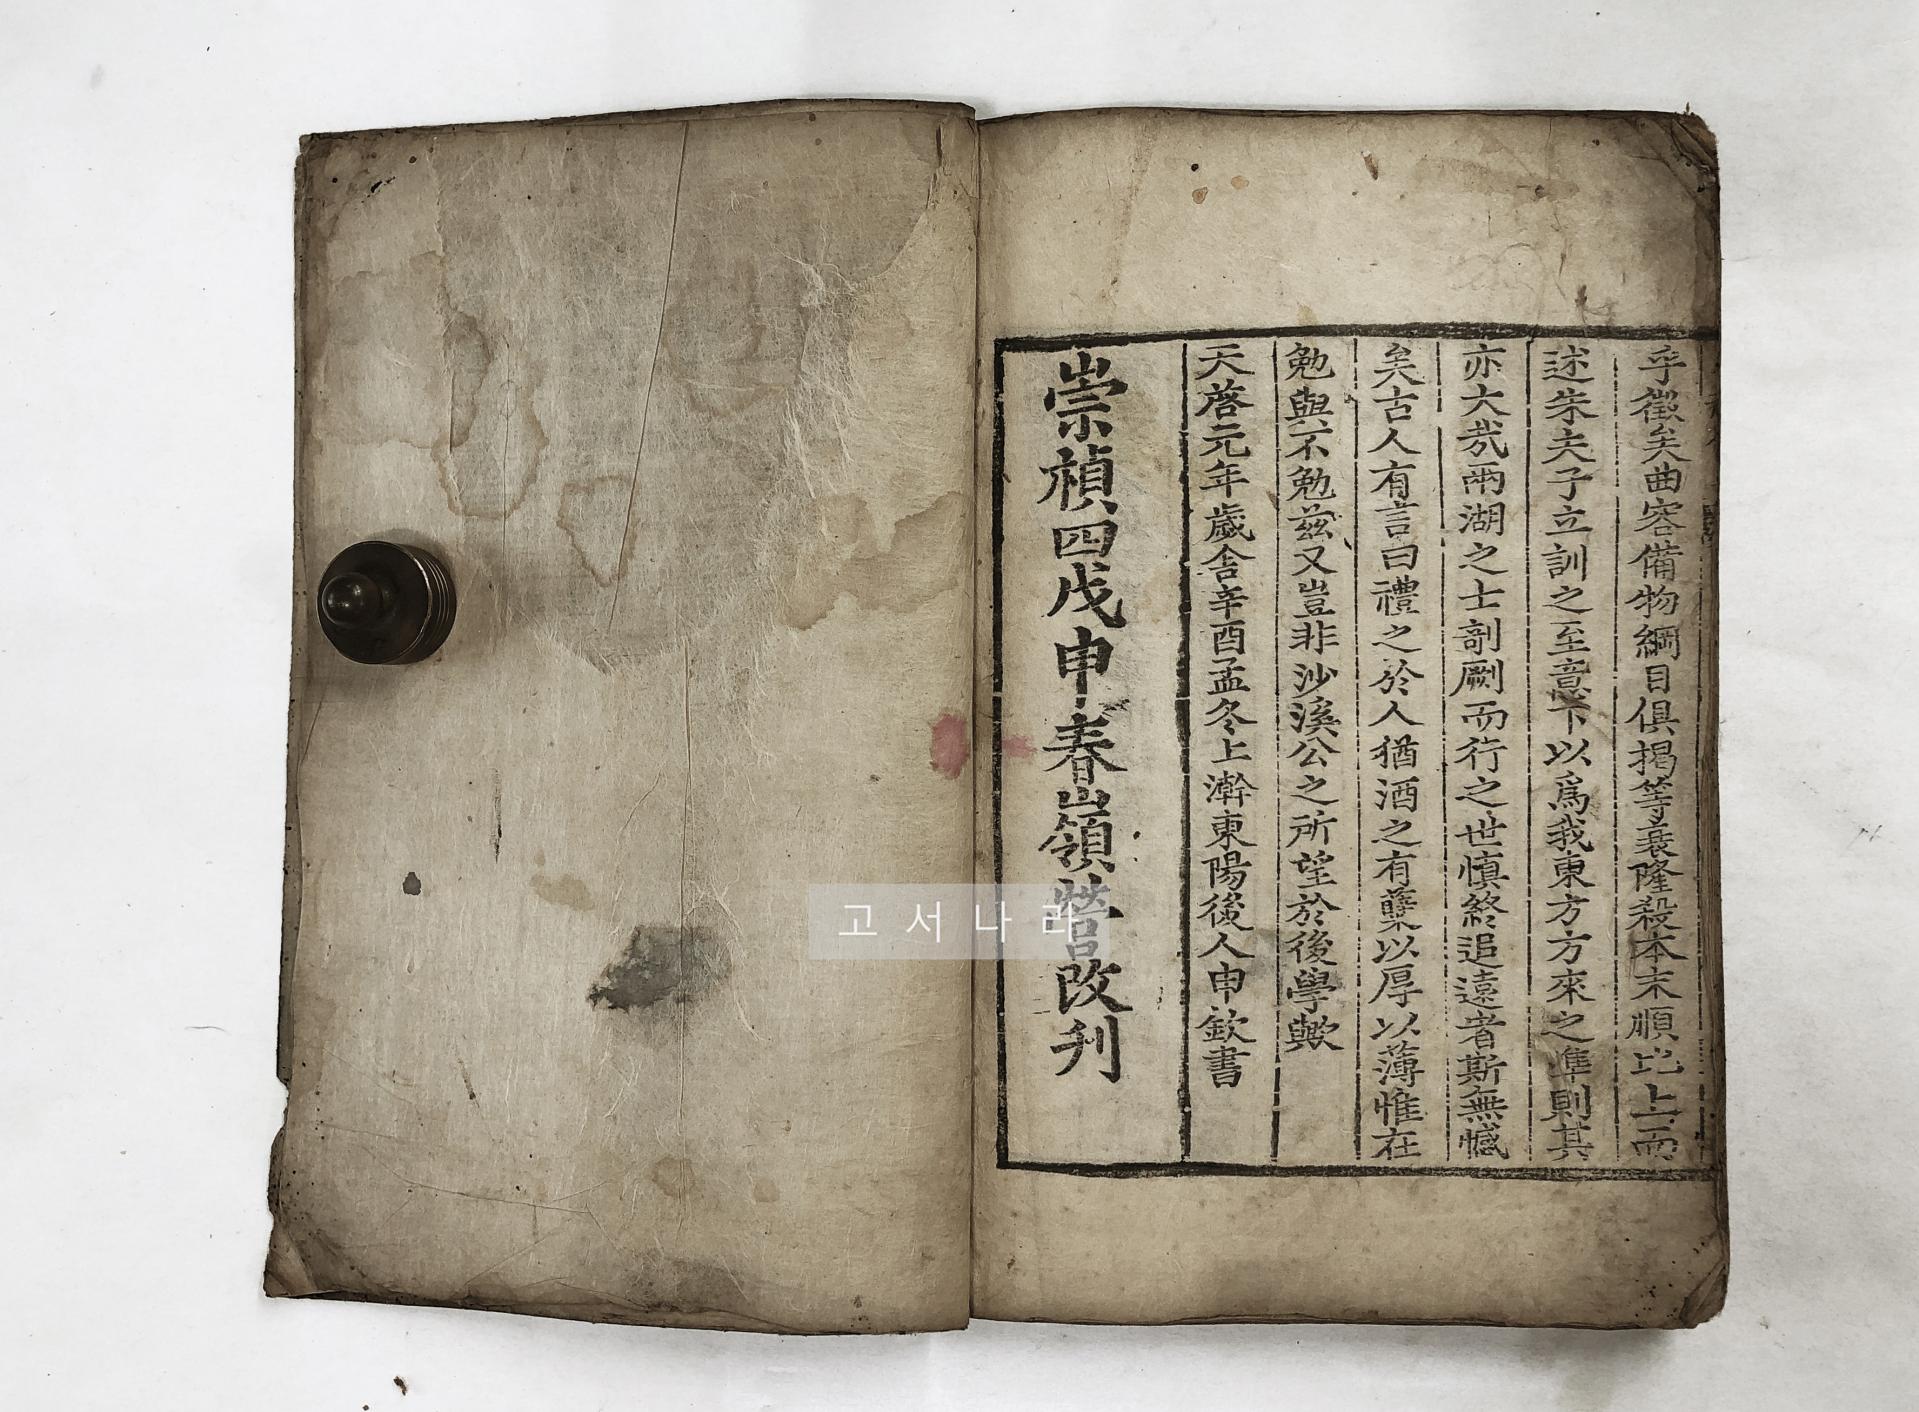 乎徵矣曲容備物綱目俱揭等衰隆殺本末順比上而
述朱夫子立訓之至意下以爲我東方方來之準則其
亦大哉兩湖之士剞劂而行之世愼終追遠者斯無憾
矣古人有言曰禮之於人猶酒之有糱以厚以薄惟在
勉與不勉茲又豈非沙溪公之所望於後學歟
天啓元年歲舍辛酉孟冬上澣東陽後人申欽書
崇禎四戊申春嶺營改刊
고서나라